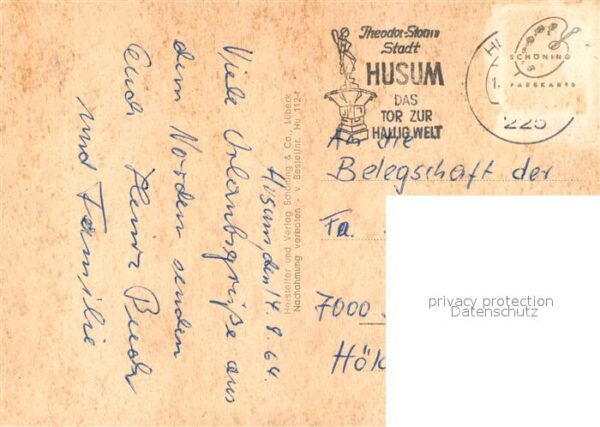 Husum, den 14.9.64.
Viele Urlaubsgrüße aus
dem Norden senden
Euch Heinz
und Familie
Hersteller und Verlag Schöning & Co., Lübeck
Nachahmung verboten - v. Bestellnr. Hu 112
Theodor-Storm
Stadt
HUSUM
DAS
TOR ZUR
HALLIG WELT
SCHÖNING
FARBKARTE
225
An die
Belegschaft der
Fa.
7000
privacy protection
Datenschutz